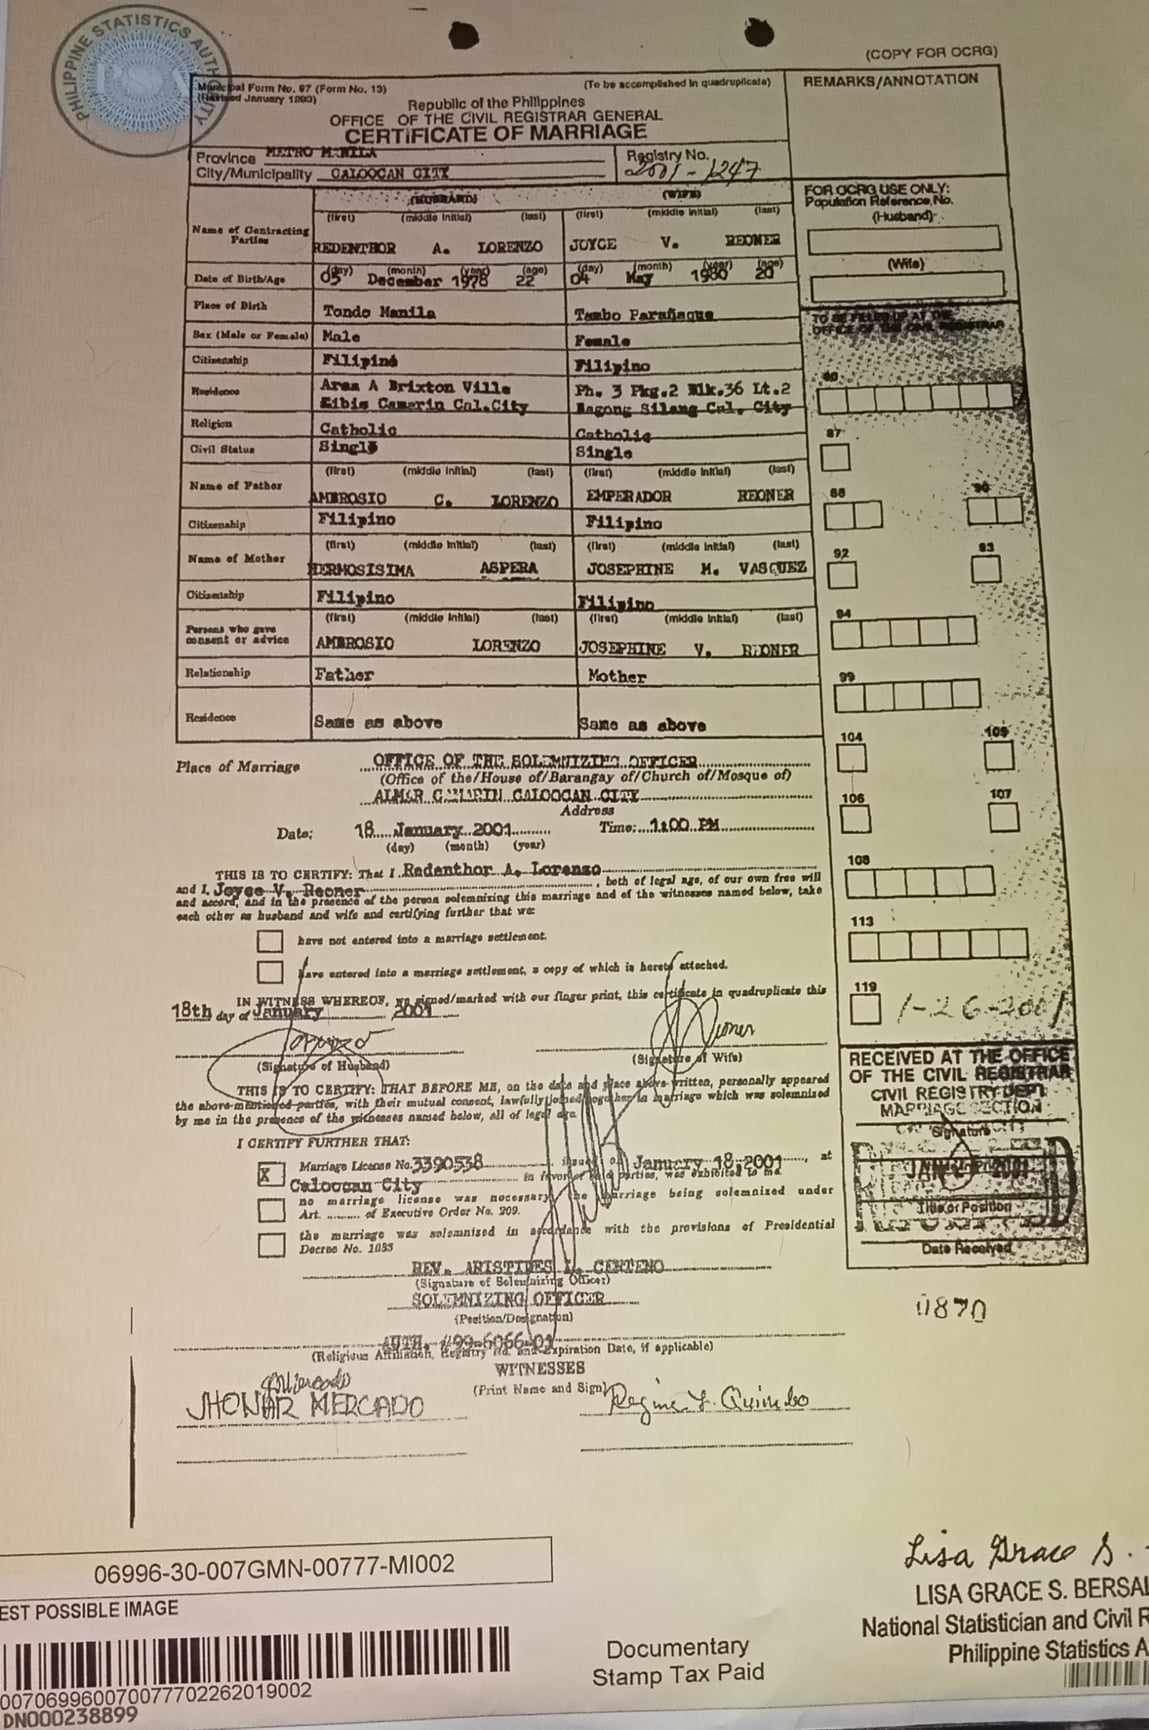 PHILIPPINE STATISTICS AUTHORITY
PSA
(COPY FOR OCRG)
Municipal Form No. 97 (Form No. 13) (To be accomplished in quadruplicate)
(Revised January 1993)
Republic of the Philippines
OFFICE OF THE CIVIL REGISTRAR GENERAL
CERTIFICATE OF MARRIAGE
REMARKS/ANNOTATION
Province METRO MANILA
City/Municipality CALOOCAN CITY
Registry No.
2001-1247
(HUSBAND) (WIFE)
Name of Contracting Parties
(first) (middle initial) (last) (first) (middle initial) (last)
REDENTHOR A. LORENZO JOYCE V. REONER
Date of Birth/Age (day) (month) (year) (age) (day) (month) (year) (age)
05 December 1978 22 04 May 1980 20
Place of Birth Tondo Manila Tambo Parañaque
Sex (Male or Female) Male Female
Citizenship Filipino Filipino
Residence Area A Brixton Ville Ph. 3 Pkg.2 Blk.36 Lt.2
Kibis Camarin Cal.City Bagong Silang Cal. City
Religion Catholic Catholic
Civil Status Single Single
Name of Father (first) (middle initial) (last) (first) (middle initial) (last)
AMBROSIO C. LORENZO EMPERADOR REONER
Citizenship Filipino Filipino
Name of Mother (first) (middle initial) (last) (first) (middle initial) (last)
HERMOSISIMA ASPERA JOSEPHINE M. VASQUEZ
Citizenship Filipino Filipino
Persons who gave consent or advice (first) (middle initial) (last) (first) (middle initial) (last)
AMBROSIO LORENZO JOSEPHINE V. REONER
Relationship Father Mother
Residence Same as above Same as above
FOR OCRG USE ONLY:
Population Reference No.
(Husband)
(Wife)
TO BE FILLED UP AT THE
OFFICE OF THE CIVIL REGISTRAR
87
88 90
92 93
94
99
104 105
106 107
108
113
119
1-26-2001
Place of Marriage OFFICE OF THE SOLEMNIZING OFFICER
(Office of the/House of/Barangay of/Church of/Mosque of)
ALMAR CAMARIN CALOOCAN CITY
Address
Date: 18 January 2001 Time: 1:00 PM
(day) (month) (year)
THIS IS TO CERTIFY: That I Redenthor A. Lorenzo
and I, Joyce V. Reoner, both of legal age, of our own free will
and accord, and in the presence of the person solemnizing this marriage and of the witnesses named below, take
each other as husband and wife and certifying further that we:
have not entered into a marriage settlement.
have entered into a marriage settlement, a copy of which is hereto attached.
IN WITNESS WHEREOF, we signed/marked with our finger print, this certificate in quadruplicate this
18th day of January 2001
(Signature of Husband) (Signature of Wife)
THIS IS TO CERTIFY: THAT BEFORE ME, on the date and place above-written, personally appeared
the above-mentioned parties, with their mutual consent, lawfully joined together in marriage which was solemnized
by me in the presence of the witnesses named below, all of legal age.
I CERTIFY FURTHER THAT:
X Marriage License No. 3390538 issued on January 18 2001, at
Caloocan City in favor of said parties, was exhibited to me.
no marriage license was necessary, the marriage being solemnized under
Art. of Executive Order No. 209.
the marriage was solemnized in accordance with the provisions of Presidential
Decree No. 1083
REV. ARISTIDES CENTENO
(Signature of Solemnizing Officer)
SOLEMNIZING OFFICER
(Position/Designation)
AUTH. #99-6066-01
(Religious Affiliation, Registry No. and Expiration Date, if applicable)
WITNESSES
(Print Name and Sign)
JHONAR MERCADO Quimbo
RECEIVED AT THE OFFICE
OF THE CIVIL REGISTRAR
CIVIL REGISTRY DEPT.
MARRIAGE SECTION
Signature
Title or Position
Date Received
0870
06996-30-007GMN-00777-MI002
EST POSSIBLE IMAGE
007069960070077702262019002
DN000238899
Documentary
Stamp Tax Paid
Lisa Grace S.
LISA GRACE S. BERSAL
National Statistician and Civil R
Philippine Statistics A